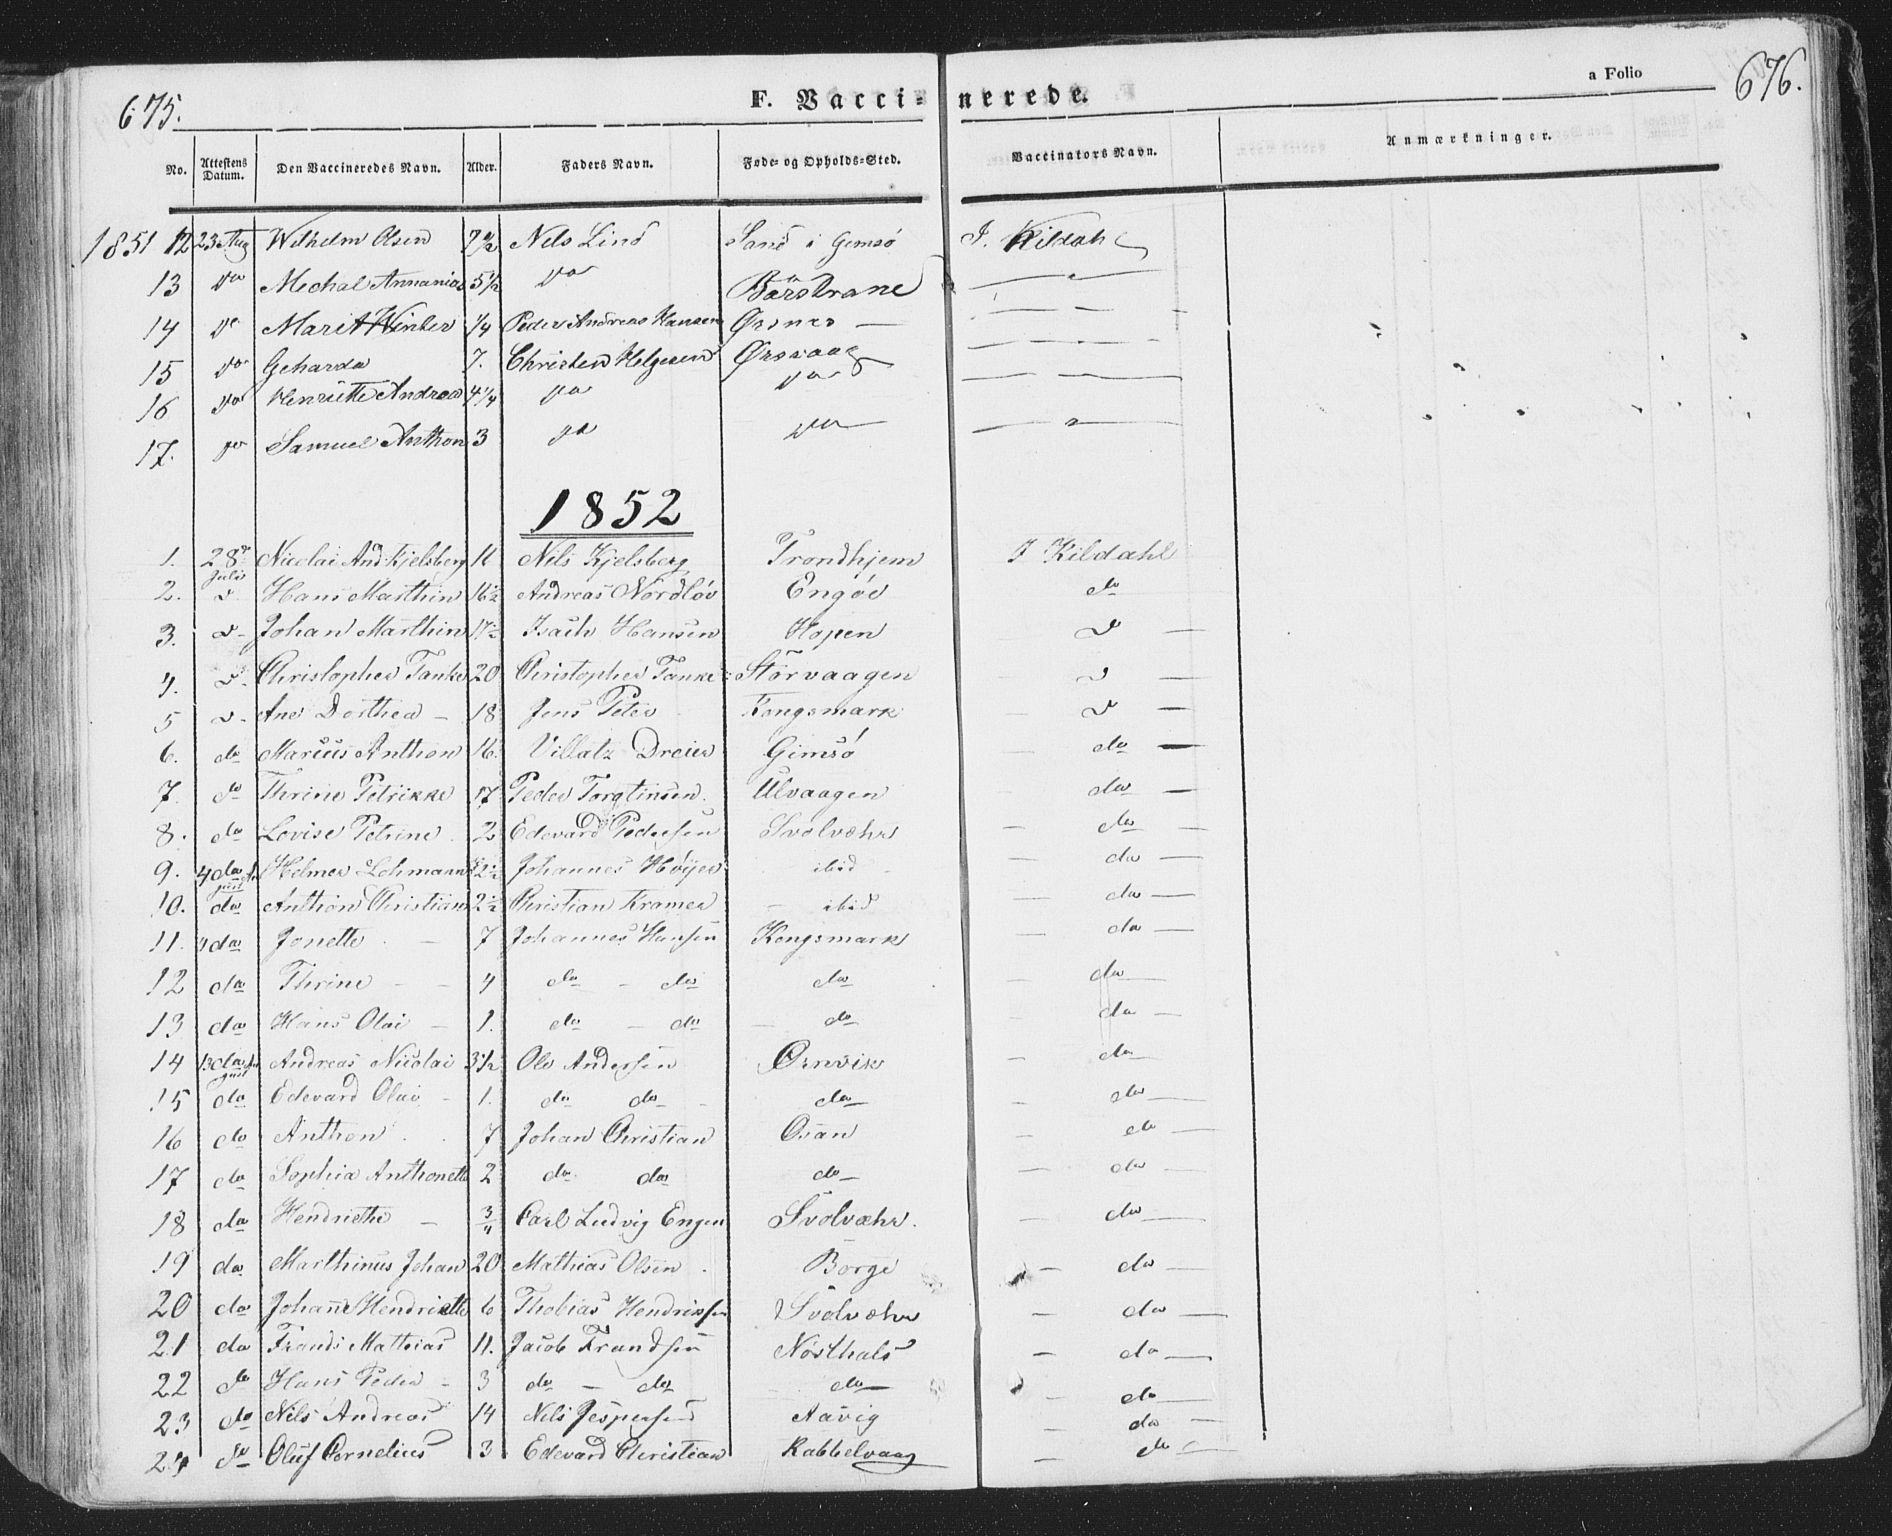 675.
F. Vaccinerede.
a Folio 676.
No. Attestens Datum. Den Vaccineredes Navn. Alder. Faders Navn. Føde- og Opholds-Sted. Vaccinators Navn. Anmærkninger.
1851 12 23 Aug Wilhelm Olsen 7 1/2 Nils Lind Sand i Gimsø J. Kildahl
13 do Mechal Annanias 5 1/2 do Børstrand — " —
14 do Marit Winther 1/4 Peder Andreas Hansen Ørsnes — — —
15 do Geharda 7. Christen Helgesen Ørsvaag — — —
16 do Henriette Andrea 4 1/4 do do — — —
17. do Samuel Anthon 3 do do — " —
1852
1. 28de Juli Nicolai And Kjelsberg 11 Nils Kjelsberg Trondhjem J Kildahl
2. d Hans Marthin 16½ Andreas Nordløv Engøe do
3. d- Johan Marthin 17½ Isach Hansen Hopen d —
4. d- Christopher Tanke 20 Christopher Tanke Størvaagen d —
5 d- Ane Dorthea — 18 Jens Peter Kongsmark — d —
6. do Marius Anthon 16. Villatz Dreier Gimsø — do —
7. do Thrine Petrikke 17 Peder Torgtinsen. Ulvaagen do —
8. do Lovise Petrine. 2 Edevard Pedersen Svolvæhr — do —
9. 4 do August Helmer Lehmann 2½ Johannes Høyer ibid — do —
10. do Anthon Christian 2½ Christian Kramer — ibid — do —
11. 9 do Jonette. — 7 Johannes Hansen Kongsmark — do —
12 do Thrine — — 4 do — do do — do —
13 do Hans Olai — 1. do — do — do do —
14 13 do August Andreas Nicolai 3½ Ole Andersen Ørnvik — do —
15 do Edevard Olai — 1. do do — do — do —
16 do Anthon. . 7 Johan Christian Osan — do —
17 do Sophia Anthonette 2 do do do — — do —
18 do Hendriethe — 3/4 Carl Ludvig Engen Svolvæhr. — do —
19 do Marthinus Johan 20 Mathias Olsen. Borge — do —
20 do Johan Hendriette 6 Thobias Hendriksen Svolvæhr — do —
21 do Frands Mathias 11. Jacob Frandsen Nøsthals — do —
22 do Hans Peder — 3 do — do do — — do —
23 do Nils Andreas 14 Nils Jespersen Aavig — do —
24 do Oluf Cornelius 3 Edevard Christian Kabbelvaag — do —